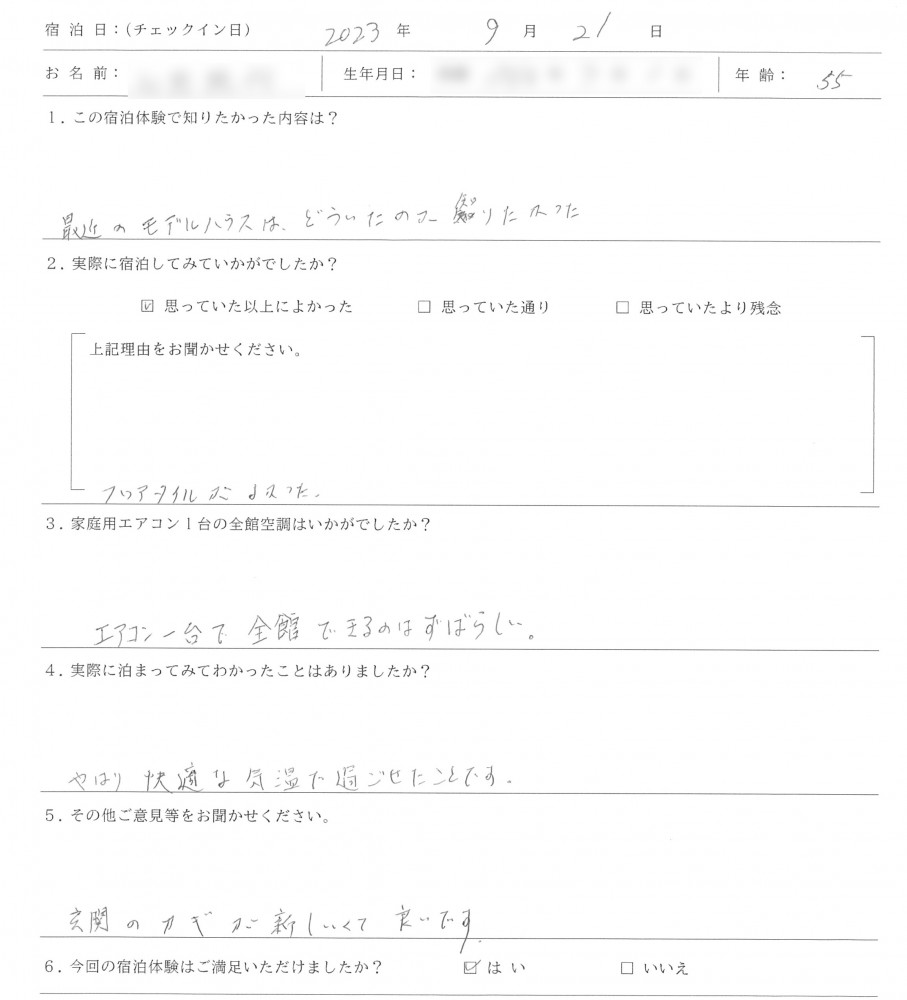 宿泊日：(チェックイン日) 2023年 9月 21日
お名前： 生年月日： 年齢： 55
1. この宿泊体験で知りたかった内容は？
最近のモデルハウスは、どういたのか知りたかった
2. 実際に宿泊してみていかがでしたか？
☑ 思っていた以上によかった □ 思っていた通り □ 思っていたより残念
上記理由をお聞かせください。
フロアタイルがよかった.
3. 家庭用エアコン1台の全館空調はいかがでしたか？
エアコン一台で全館できるのはずばらしい。
4. 実際に泊まってみてわかったことはありましたか？
やはり快適な気温で過ごせたことです.
5. その他ご意見等をお聞かせください。
玄関のカギが新しいくて良いです.
6. 今回の宿泊体験はご満足いただけましたか？ ☑ はい □ いいえ